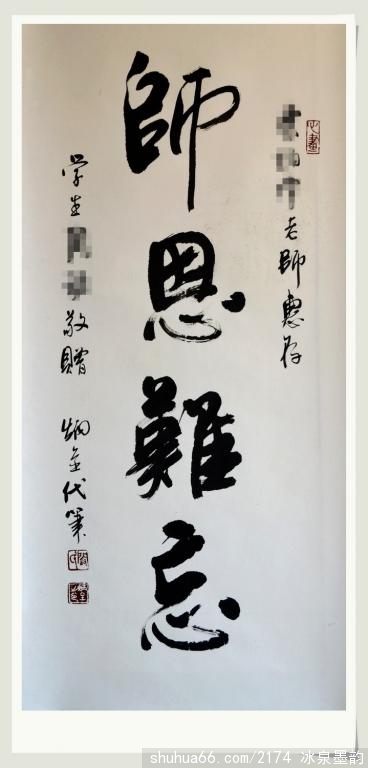 心畫
老師惠存
師恩難忘
学生
敬贈 炳金代筆
shuhua66.com/2174 冰泉墨韵